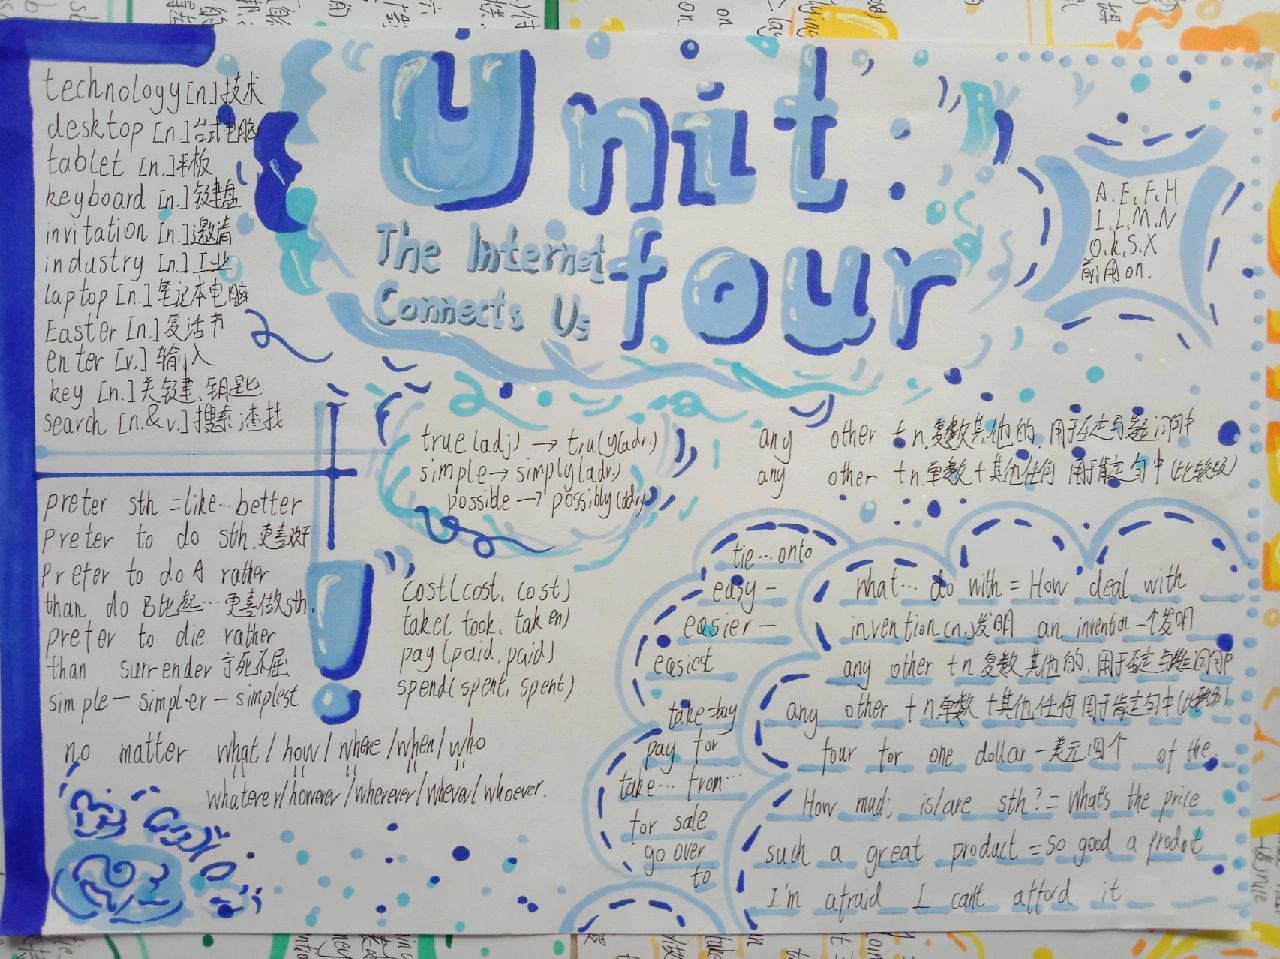 Unit
four
The Internet
Connects Us
technology[n.]技术
desktop [n.]台式电脑
tablet [n.]平板
keyboard [n.]键盘
invitation [n.]邀请
industry [n.]工业
laptop [n.]笔记本电脑
Easter [n.]复活节
enter [v.]输入
key [n.]关键,钥匙
search [n.&v.]搜索,查找
A.E,F,H
I.L.M.N
O.R.S.X
前用on.
true(adj)→truly(adv.)
simple→simply(adv)
possible→possibly(adv)
any other +n.复数其他的,用于否定与疑问句中
any other +n.单数+其他任何 用于肯定句中(比较级)
prefer sth =like…better
prefer to do sth.更喜欢于
prefer to do A rather
than do B比起…更喜做sth.
prefer to die rather
than surrender 宁死不屈
simple—simpler—simplest
cost(cost, cost)
take( took, taken)
pay(paid,paid)
spend(spent, spent)
no matter what/how/where/when/who
whatever/however/wherever/whever/whoever.
tie…onto
easy-
easier-
easiest
take=buy
pay for
take…from…
for sale
go over
to
what…do with=How deal with
invention(n.)发明 an invention一个发明
any other +n.复数其他的,用于否定与疑问句中
any other +n.单数+其他任何 用于肯定句中(比较级)
four for one dollar一美元四个 of the
How much is/are sth?=What's the price
such a great product=so good a prodct
I'm afraid I can't afford it